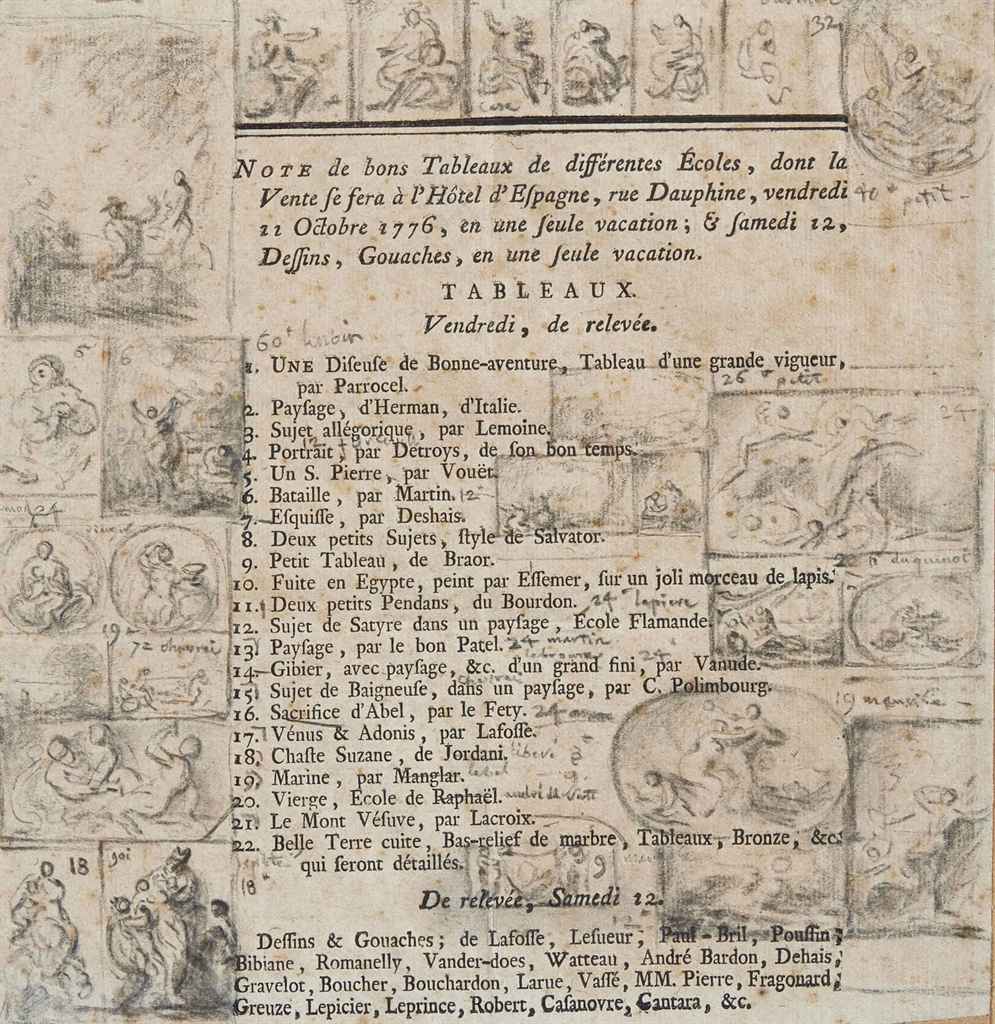 32
Case
NOTE de bons Tableaux de différentes Écoles, dont la
Vente ſe fera à l'Hôtel d'Eſpagne, rue Dauphine, vendredi
11 Octobre 1776, en une ſeule vacation; & ſamedi 12,
Deſſins, Gouaches, en une ſeule vacation.
petit
TABLEAUX.
Vendredi, de relevée.
60
1. UNE Diſeuſe de Bonne-aventure, Tableau d'une grande vigueur,
par Parrocel.
26 petit
2. Payſage, d'Herman, d'Italie.
24
3. Sujet allégorique, par Lemoine.
12
4. Portrait, par Detroys, de ſon bon temps.
5. Un S. Pierre, par Vouët.
6. Bataille, par Martin. 12
24
7. Eſquiſſe, par Deshais.
8. Deux petits Sujets, ſtyle de Salvator.
9. Petit Tableau, de Braor.
10. Fuite en Egypte, peint par Eſſemer, ſur un joli morceau de lapis.
11. Deux petits Pendans, du Bourdon. 24
12. Sujet de Satyre dans un payſage, École Flamande.
19
72
13. Payſage, par le bon Patel. 24 martin
24
14. Gibier, avec payſage, &c. d'un grand fini, par Vanude.
15. Sujet de Baigneuſe, dans un payſage, par C. Polimbourg.
16. Sacrifice d'Abel, par le Fety. 24
19
17. Vénus & Adonis, par Lafoſſe.
18. Chaſte Suzane, de Jordani.
19. Marine, par Manglar.
20. Vierge, École de Raphaël.
21. Le Mont Véſuve, par Lacroix.
22. Belle Terre cuite, Bas-relief de marbre, Tableaux, Bronze, &c.
qui ſeront détaillés.
18
goi
18
9
De relevée, Samedi 12.
Deſſins & Gouaches; de Lafoſſe, Leſueur, Paul-Bril, Pouſſin;
Bibiane, Romanelly, Vander-does, Watteau, André Bardon, Dehais,
Gravelot, Boucher, Bouchardon, Larue, Vaſſé, MM. Pierre, Fragonard,
Greuze, Lepicier, Leprince, Robert, Caſanovre, Cantara, &c.